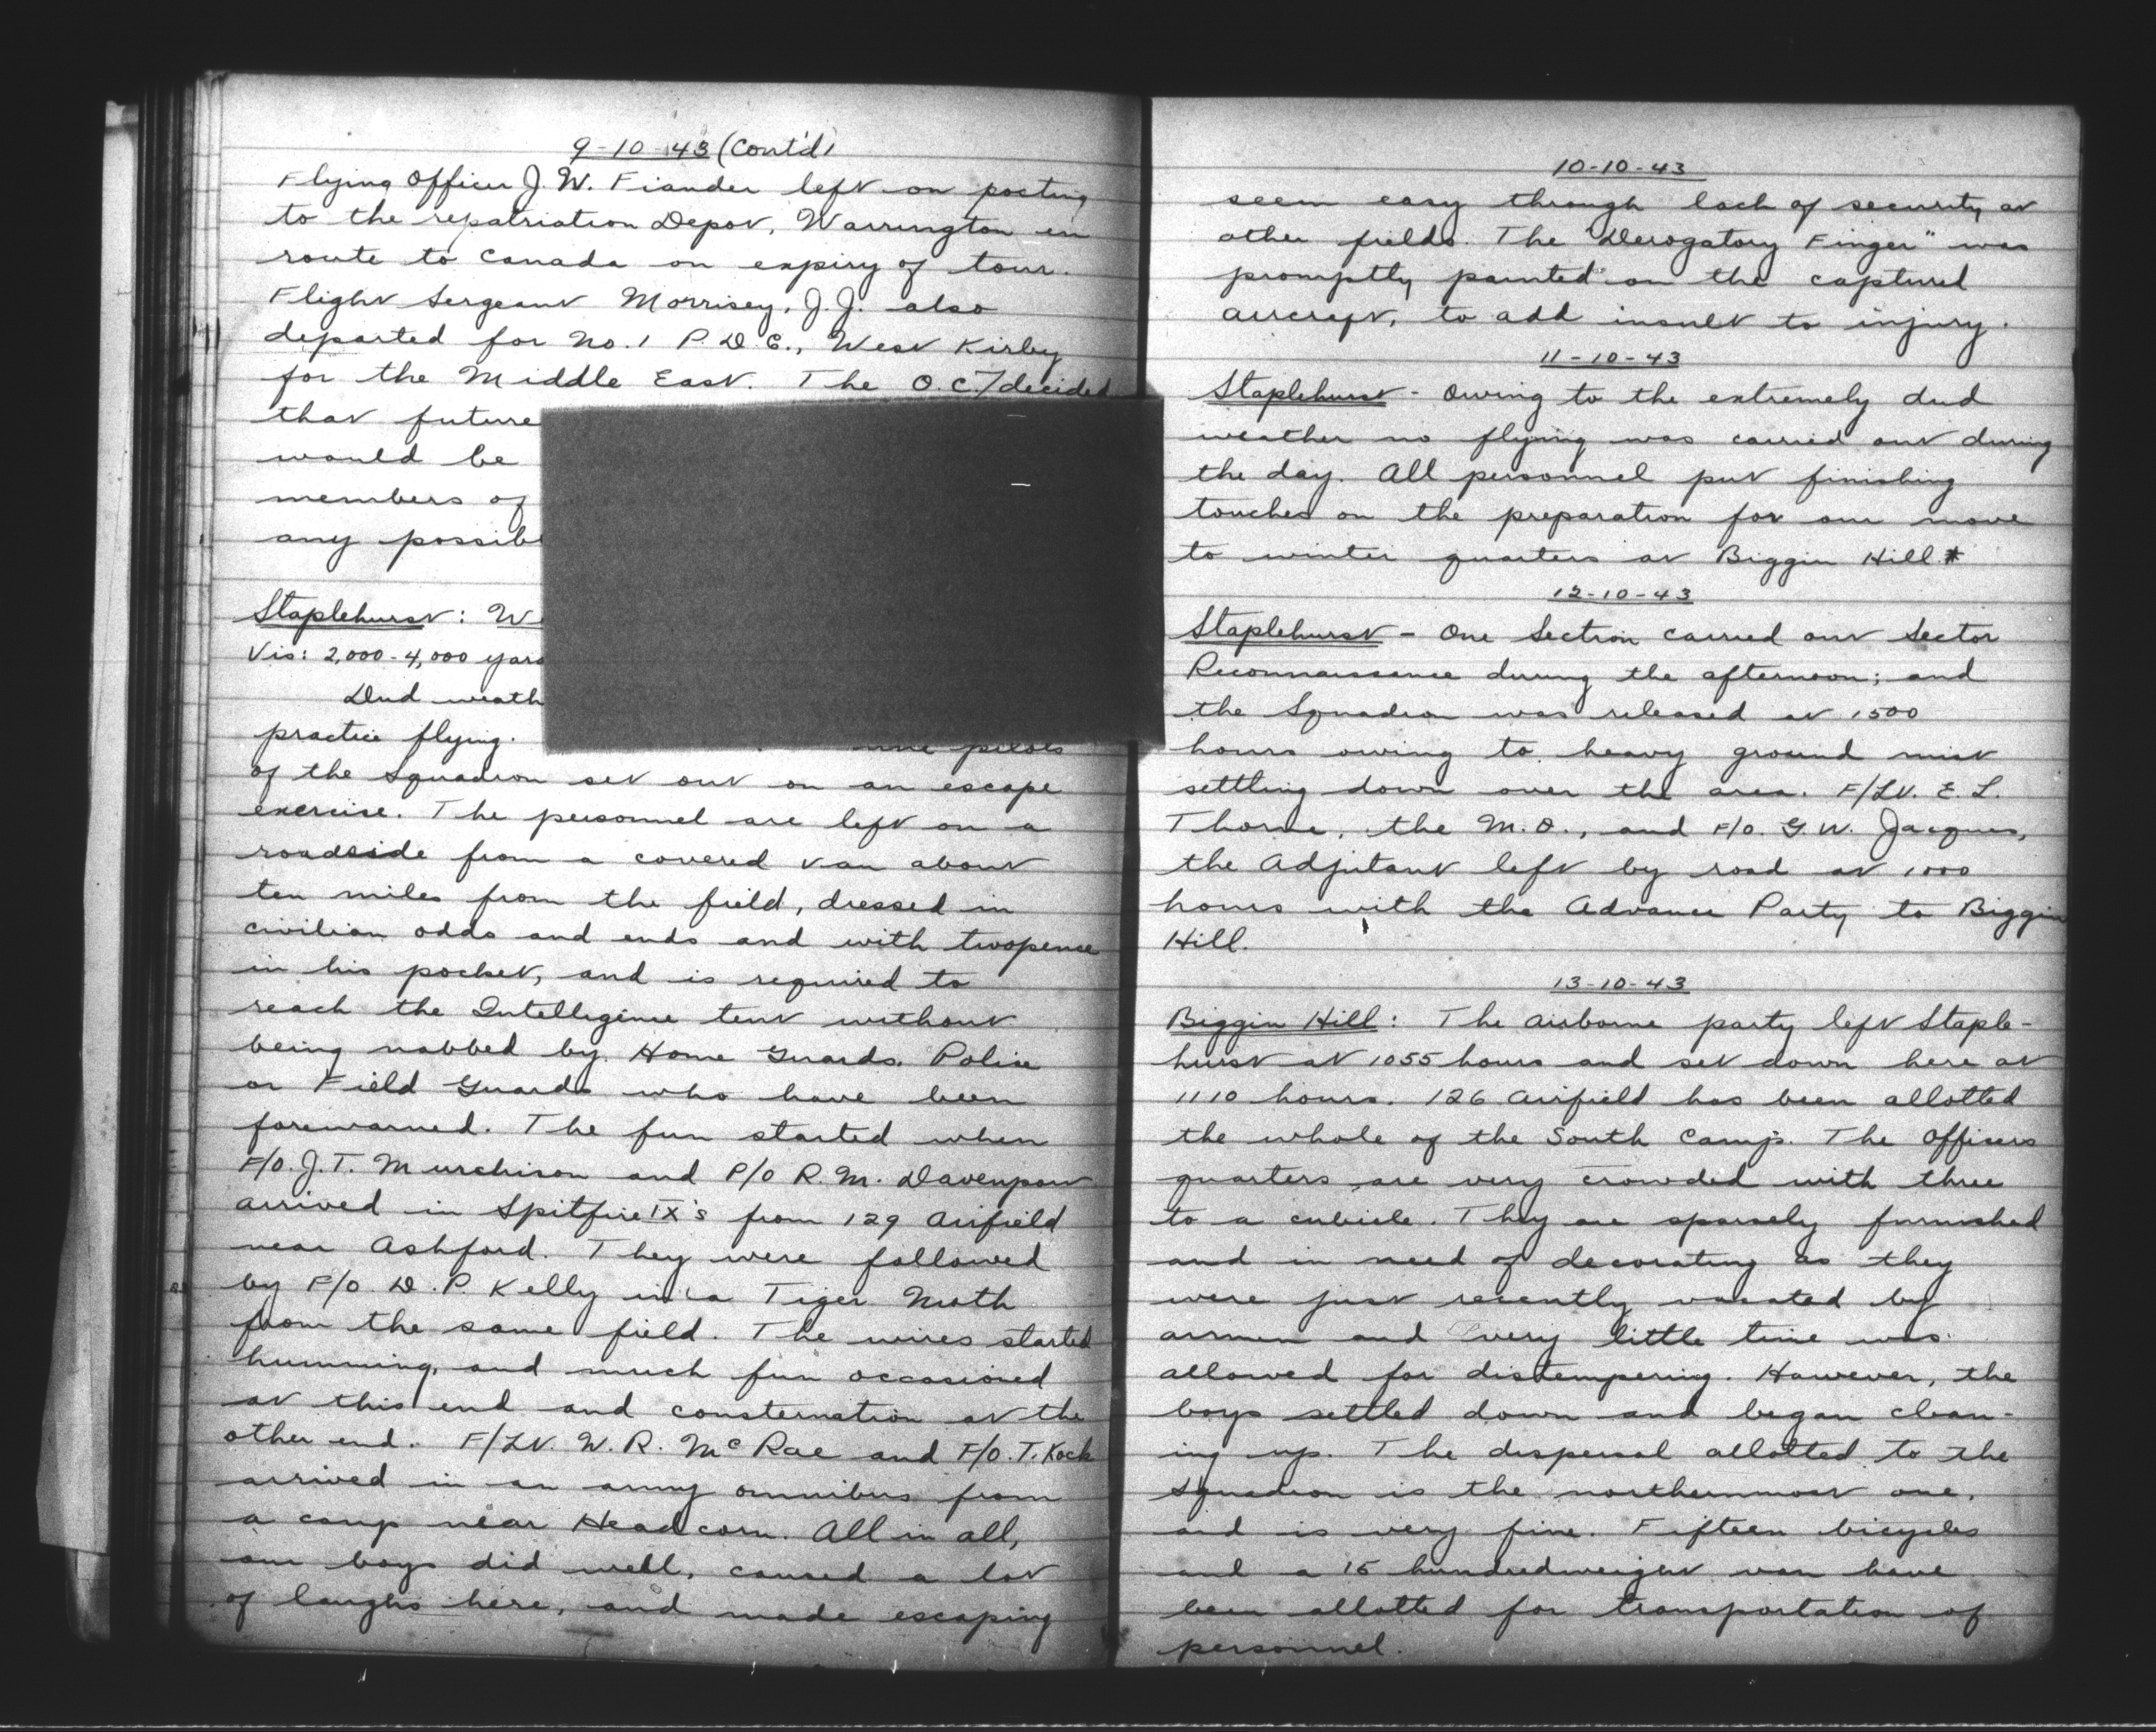 9-10-43 (Cont'd)
Flying Officer J. W. Fiander left on posting
to the repatriation Depot, Warrington en
route to Canada on expiry of tour.
Flight Sergeant Morrisey, J.J. also
departed for No. 1 P.D.C., West Kirby
for the Middle East. The O.C. decided
that future
would be
members of
any possib
Staplehurst: W
Vis: 2,000-4,000 yard
Dud weath
practice flying. pilots
of the Squadron set out on an escape
exercise. The personnel are left on a
roadside from a covered van about
ten miles from the field, dressed in
civilian odds and ends and with twopence
in his pocket, and is required to
reach the Intelligence tent without
being nabbed by Home Guards, Police
or Field Guards who have been
forewarned. The fun started when
F/O. J.T. Murchison and P/O R.M. Davenport
arrived in Spitfire IX's from 129 Airfield
near Ashford. They were followed
by F/O. D.P. Kelly in a Tiger Moth
from the same field. The wires started
humming, and much fun occasioned
at this end and consternation at the
other end. F/Lt. W.R. McRae and F/O. T. Koch
arrived in an army omnibus from
a camp near Headcorn. All in all,
our boys did well, caused a lot
of laughs here, and made escaping
10-10-43
seem easy through lack of security at
other fields. The "Derogatory Finger" was
promptly painted on the captured
aircraft, to add insult to injury.
11-10-43
Staplehurst - Owing to the extremely dud
weather no flying was carried out during
the day. All personnel put finishing
touches on the preparation for our move
to winter quarters at Biggin Hill.*
12-10-43
Staplehurst - One Section carried out Sector
Reconnaissance during the afternoon; and
the Squadron was released at 1500
hours owing to heavy ground mist
settling down over the area. F/Lt. E.L.
Thorne, the M.O., and F/O. G.W. Jacques,
the Adjutant left by road at 1000
hours with the Advance Party to Biggin
Hill.
13-10-43
Biggin Hill: The airborne party left Staple-
hurst at 1055 hours and set down here at
1110 hours. 126 Airfield has been allotted
the whole of the South Camp. The Officers
quarters are very crowded with three
to a cubicle. They are sparsely furnished
and in need of decorating as they
were just recently vacated by
airmen and very little time was
allowed for distempering. However, the
boys settled down and began clean-
ing up. The dispersal allotted to the
Squadron is the northernmost one,
and is very fine. Fifteen bicycles
and a 15 hundredweight van have
been allotted for transportation of
personnel.